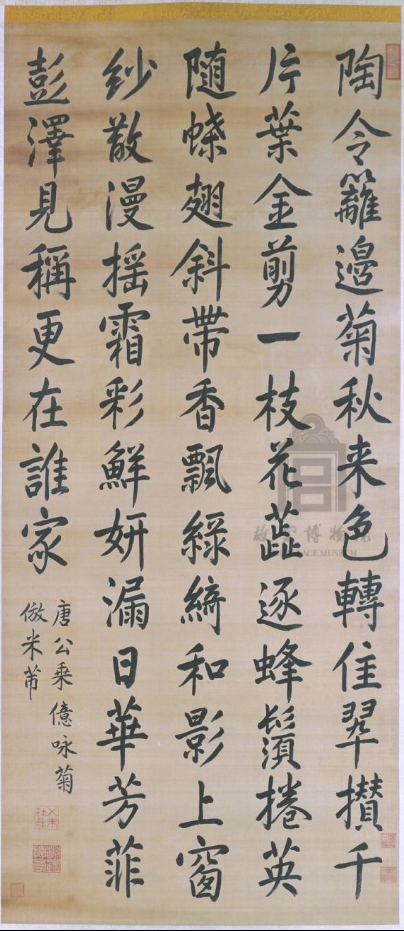 陶令籬邊菊秋来色轉佳翠攢千
片葉金剪一枝花蕋逐蜂鬚捲英
随蝶翅斜帶香飄緑綺和影上窗
紗散漫摇霜彩鮮妍漏日華芳菲
彭澤見稱更在誰家
唐公乘億咏菊
倣米芾
故宫博物院
PALACE MUSEUM